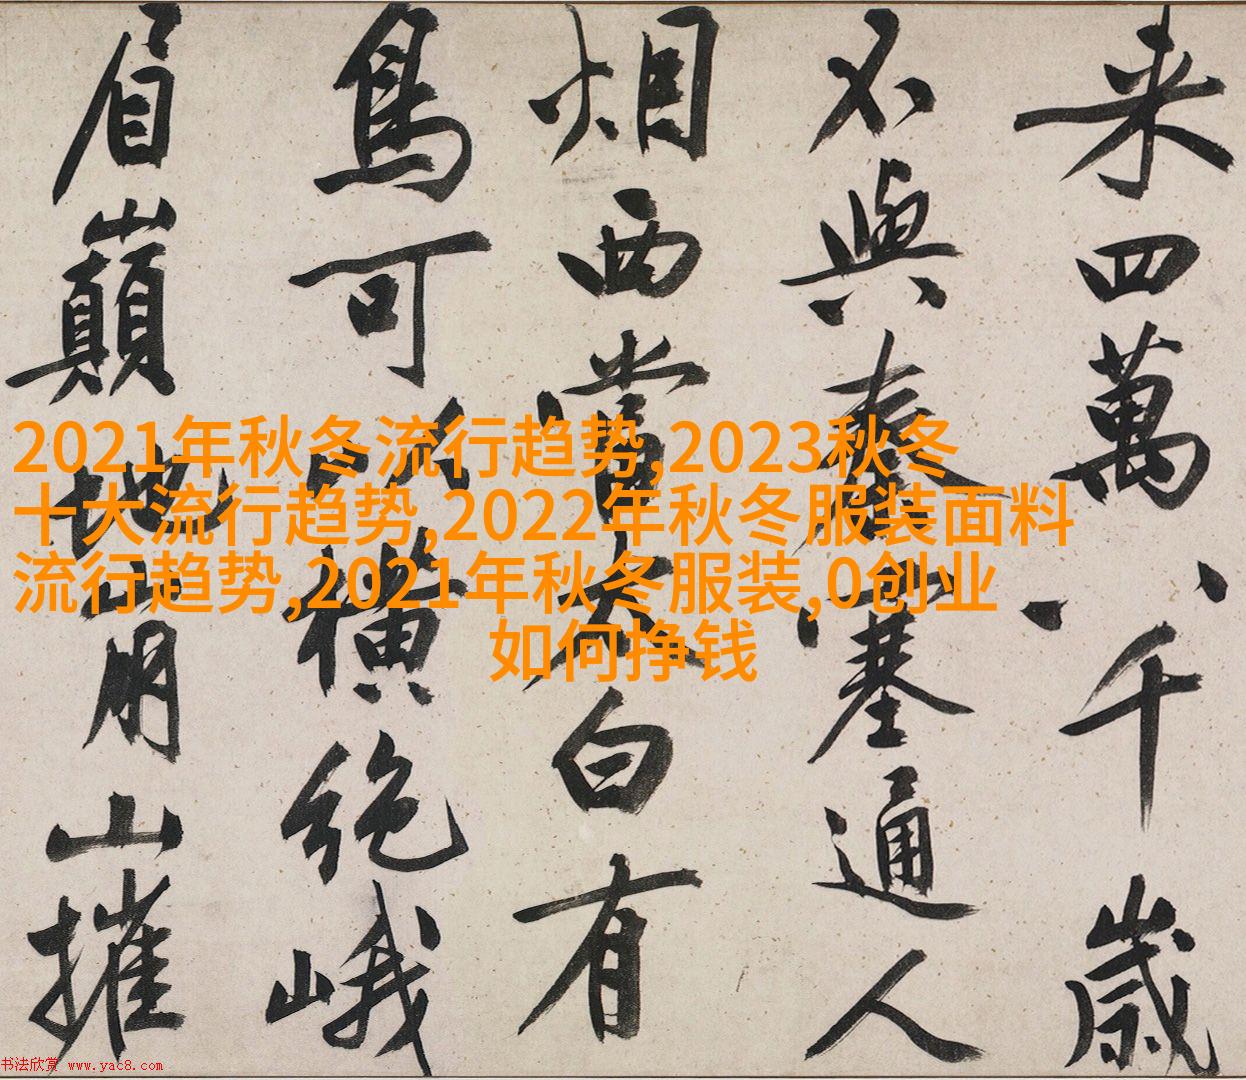 来四萬八千歲
不與秦塞通人
烟西當太白有
鳥可以橫絶峨
眉巔地崩山摧
2021年秋冬流行趋势,2023秋冬
十大流行趋势,2022年秋冬服装面料
流行趋势,2021年秋冬服装,0创业
如何挣钱
书法欣赏 www.yac8.com